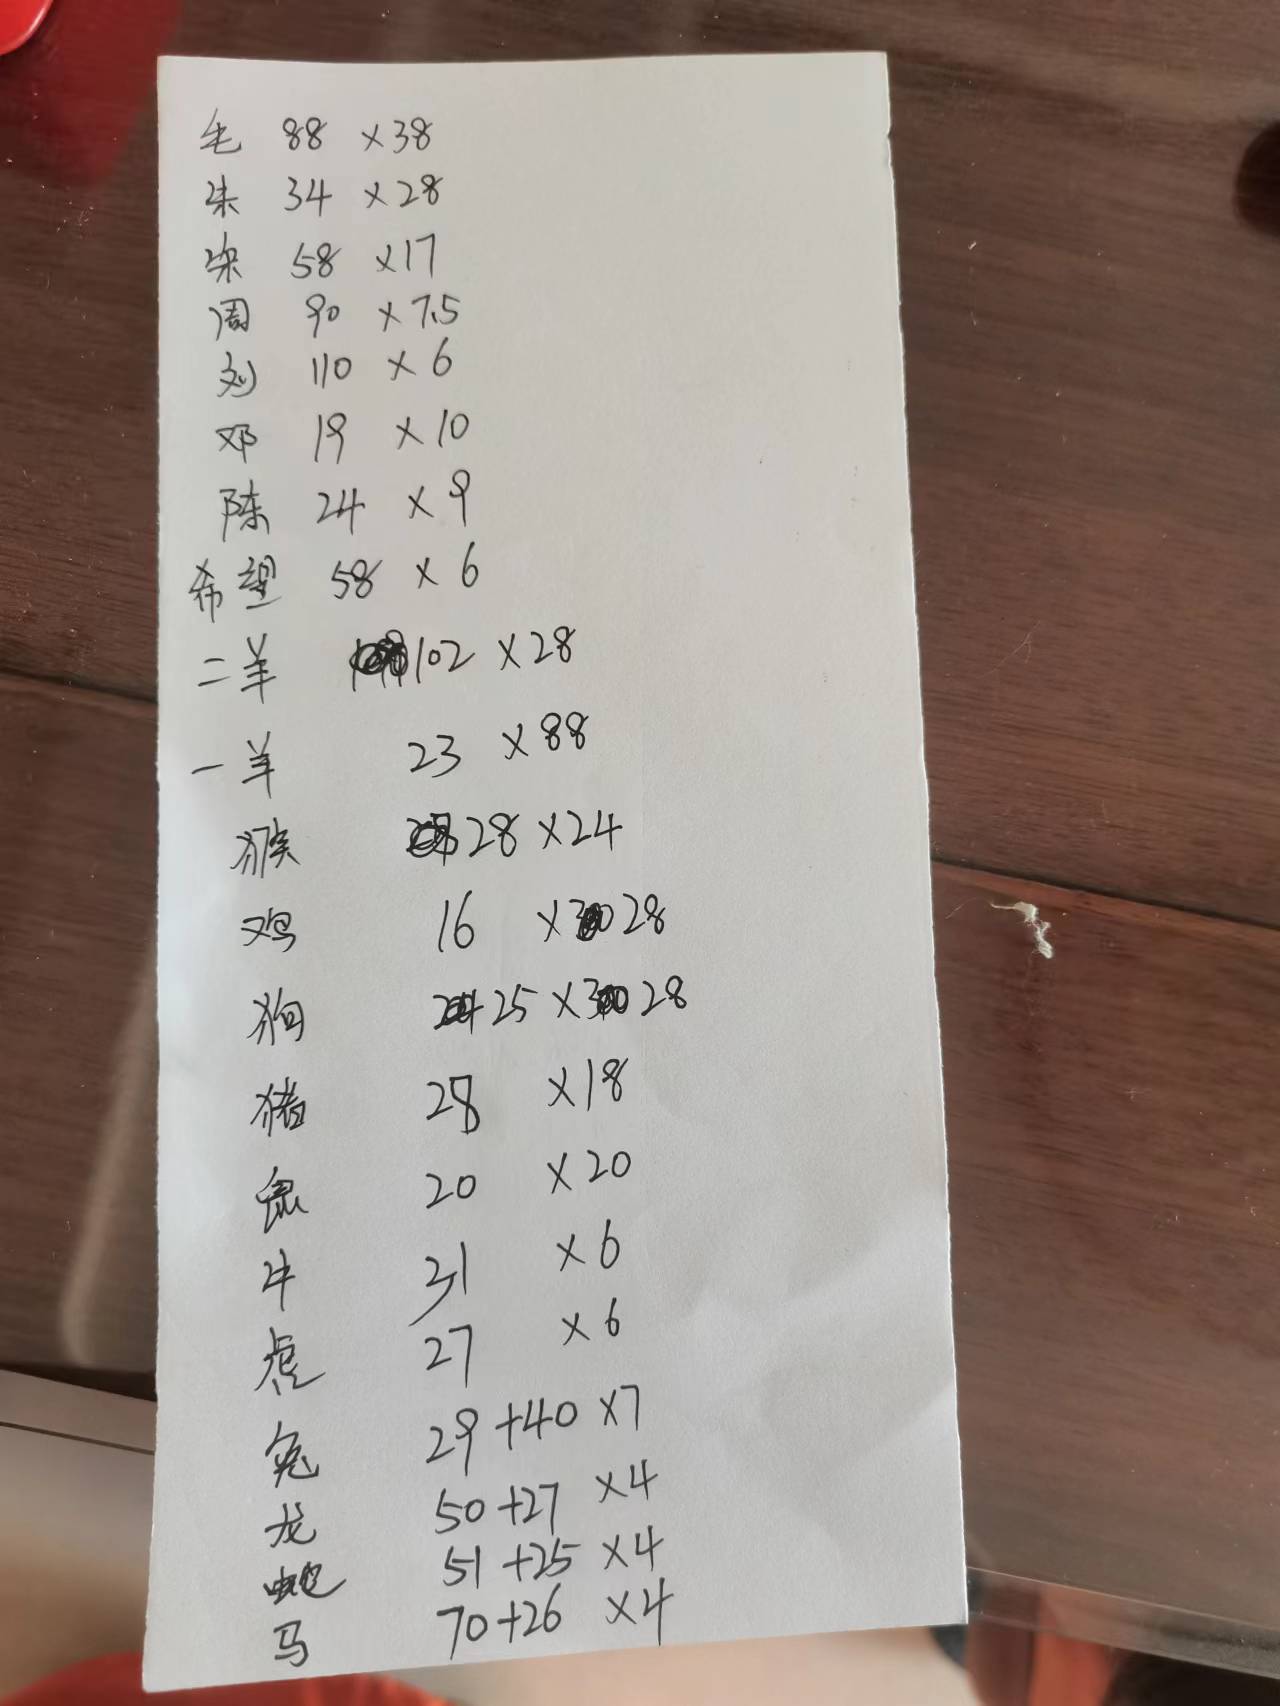 毛 88 ×38
朱 34 ×28
梁 58 ×17
周 90 ×7.5
刘 110 ×6
邓 19 ×10
陈 24 ×9
希望 58 ×6
二羊 102 ×28
一羊 23 ×88
猴 28 ×24
鸡 16 ×28
狗 25 ×28
猪 28 ×18
鼠 20 ×20
牛 31 ×6
虎 27 ×6
兔 29+40 ×7
龙 50+27 ×4
蛇 51+25 ×4
马 70+26 ×4